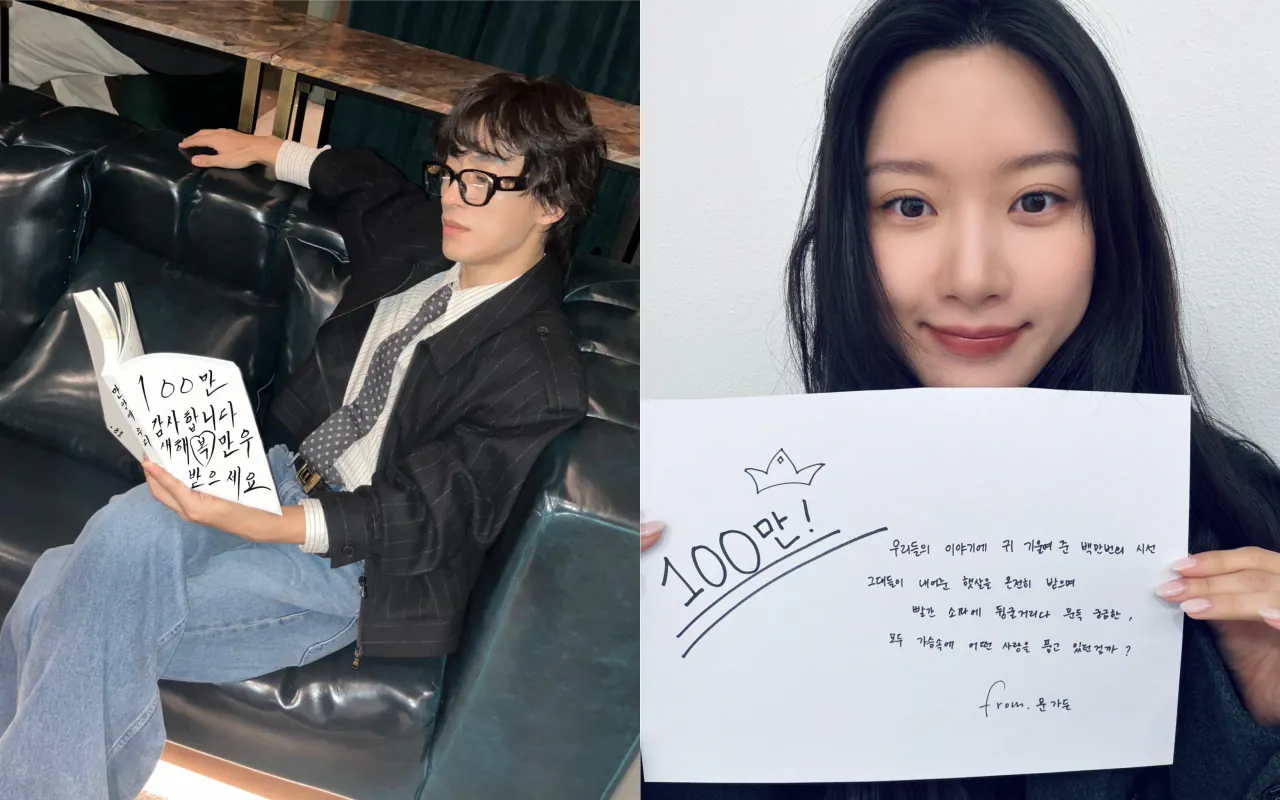 100만
감사합니다
새해 복 만우
받으세요
100만!
우리들의 이야기에 귀 기울여 준 백만번의 시선
그대들이 내어준 햇살을 온전히 받으며
빨간 소파에 뒹굴거리다 문득 궁금한,
모두 가슴속에 어떤 사랑을 품고 있던걸까?
from. 문가든